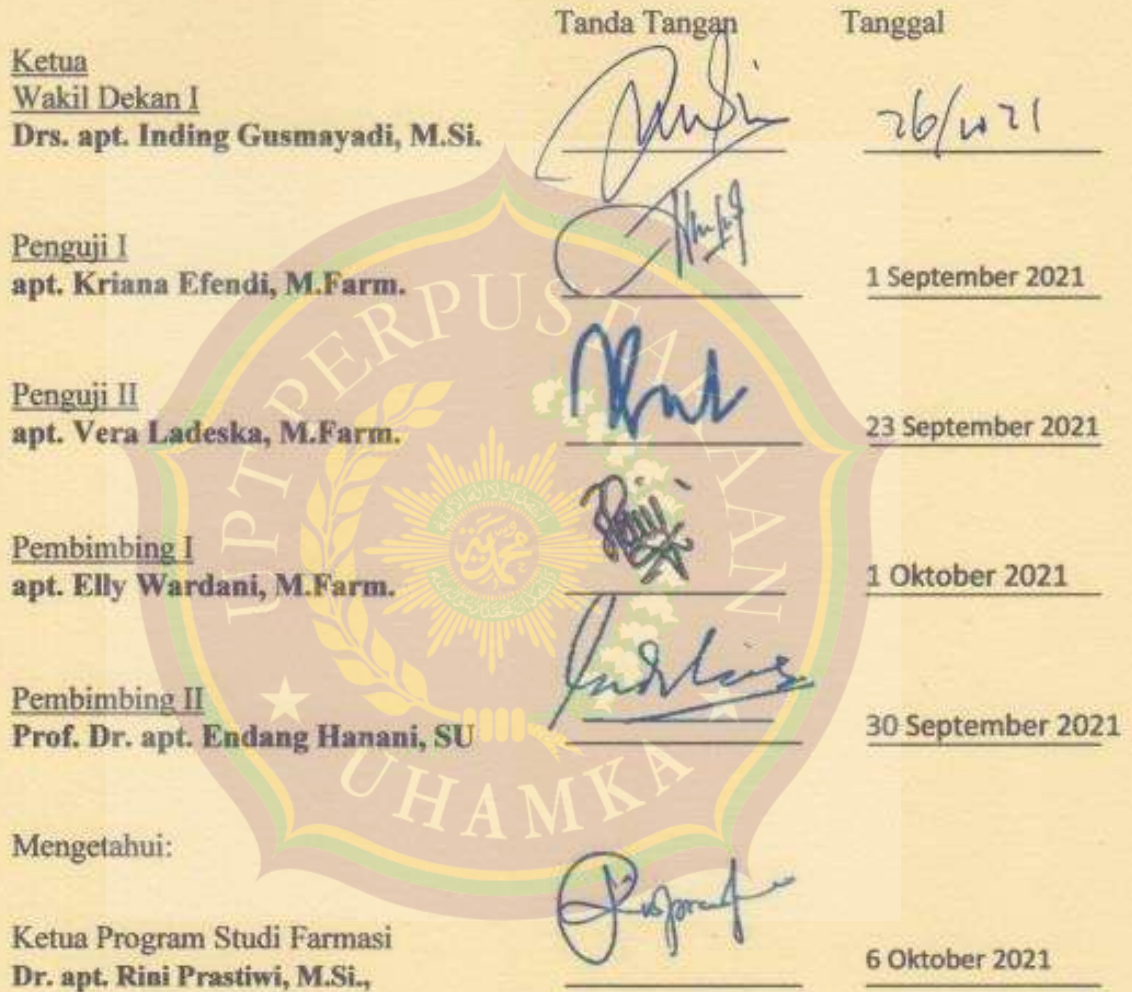 Tanda Tangan Tanggal
Ketua
Wakil Dekan I
Drs. apt. Inding Gusmayadi, M.Si.
Penguji I
apt. Kriana Efendi, M.Farm.
1 September 2021
Penguji II
apt. Vera Ladeska, M.Farm.
23 September 2021
Pembimbing I
apt. Elly Wardani, M.Farm.
1 Oktober 2021
Pembimbing II
Prof. Dr. apt. Endang Hanani, SU
30 September 2021
Mengetahui:
Ketua Program Studi Farmasi
Dr. apt. Rini Prastiwi, M.Si.,
6 Oktober 2021
UPT PERPUSTAKAAN
UHAMKA